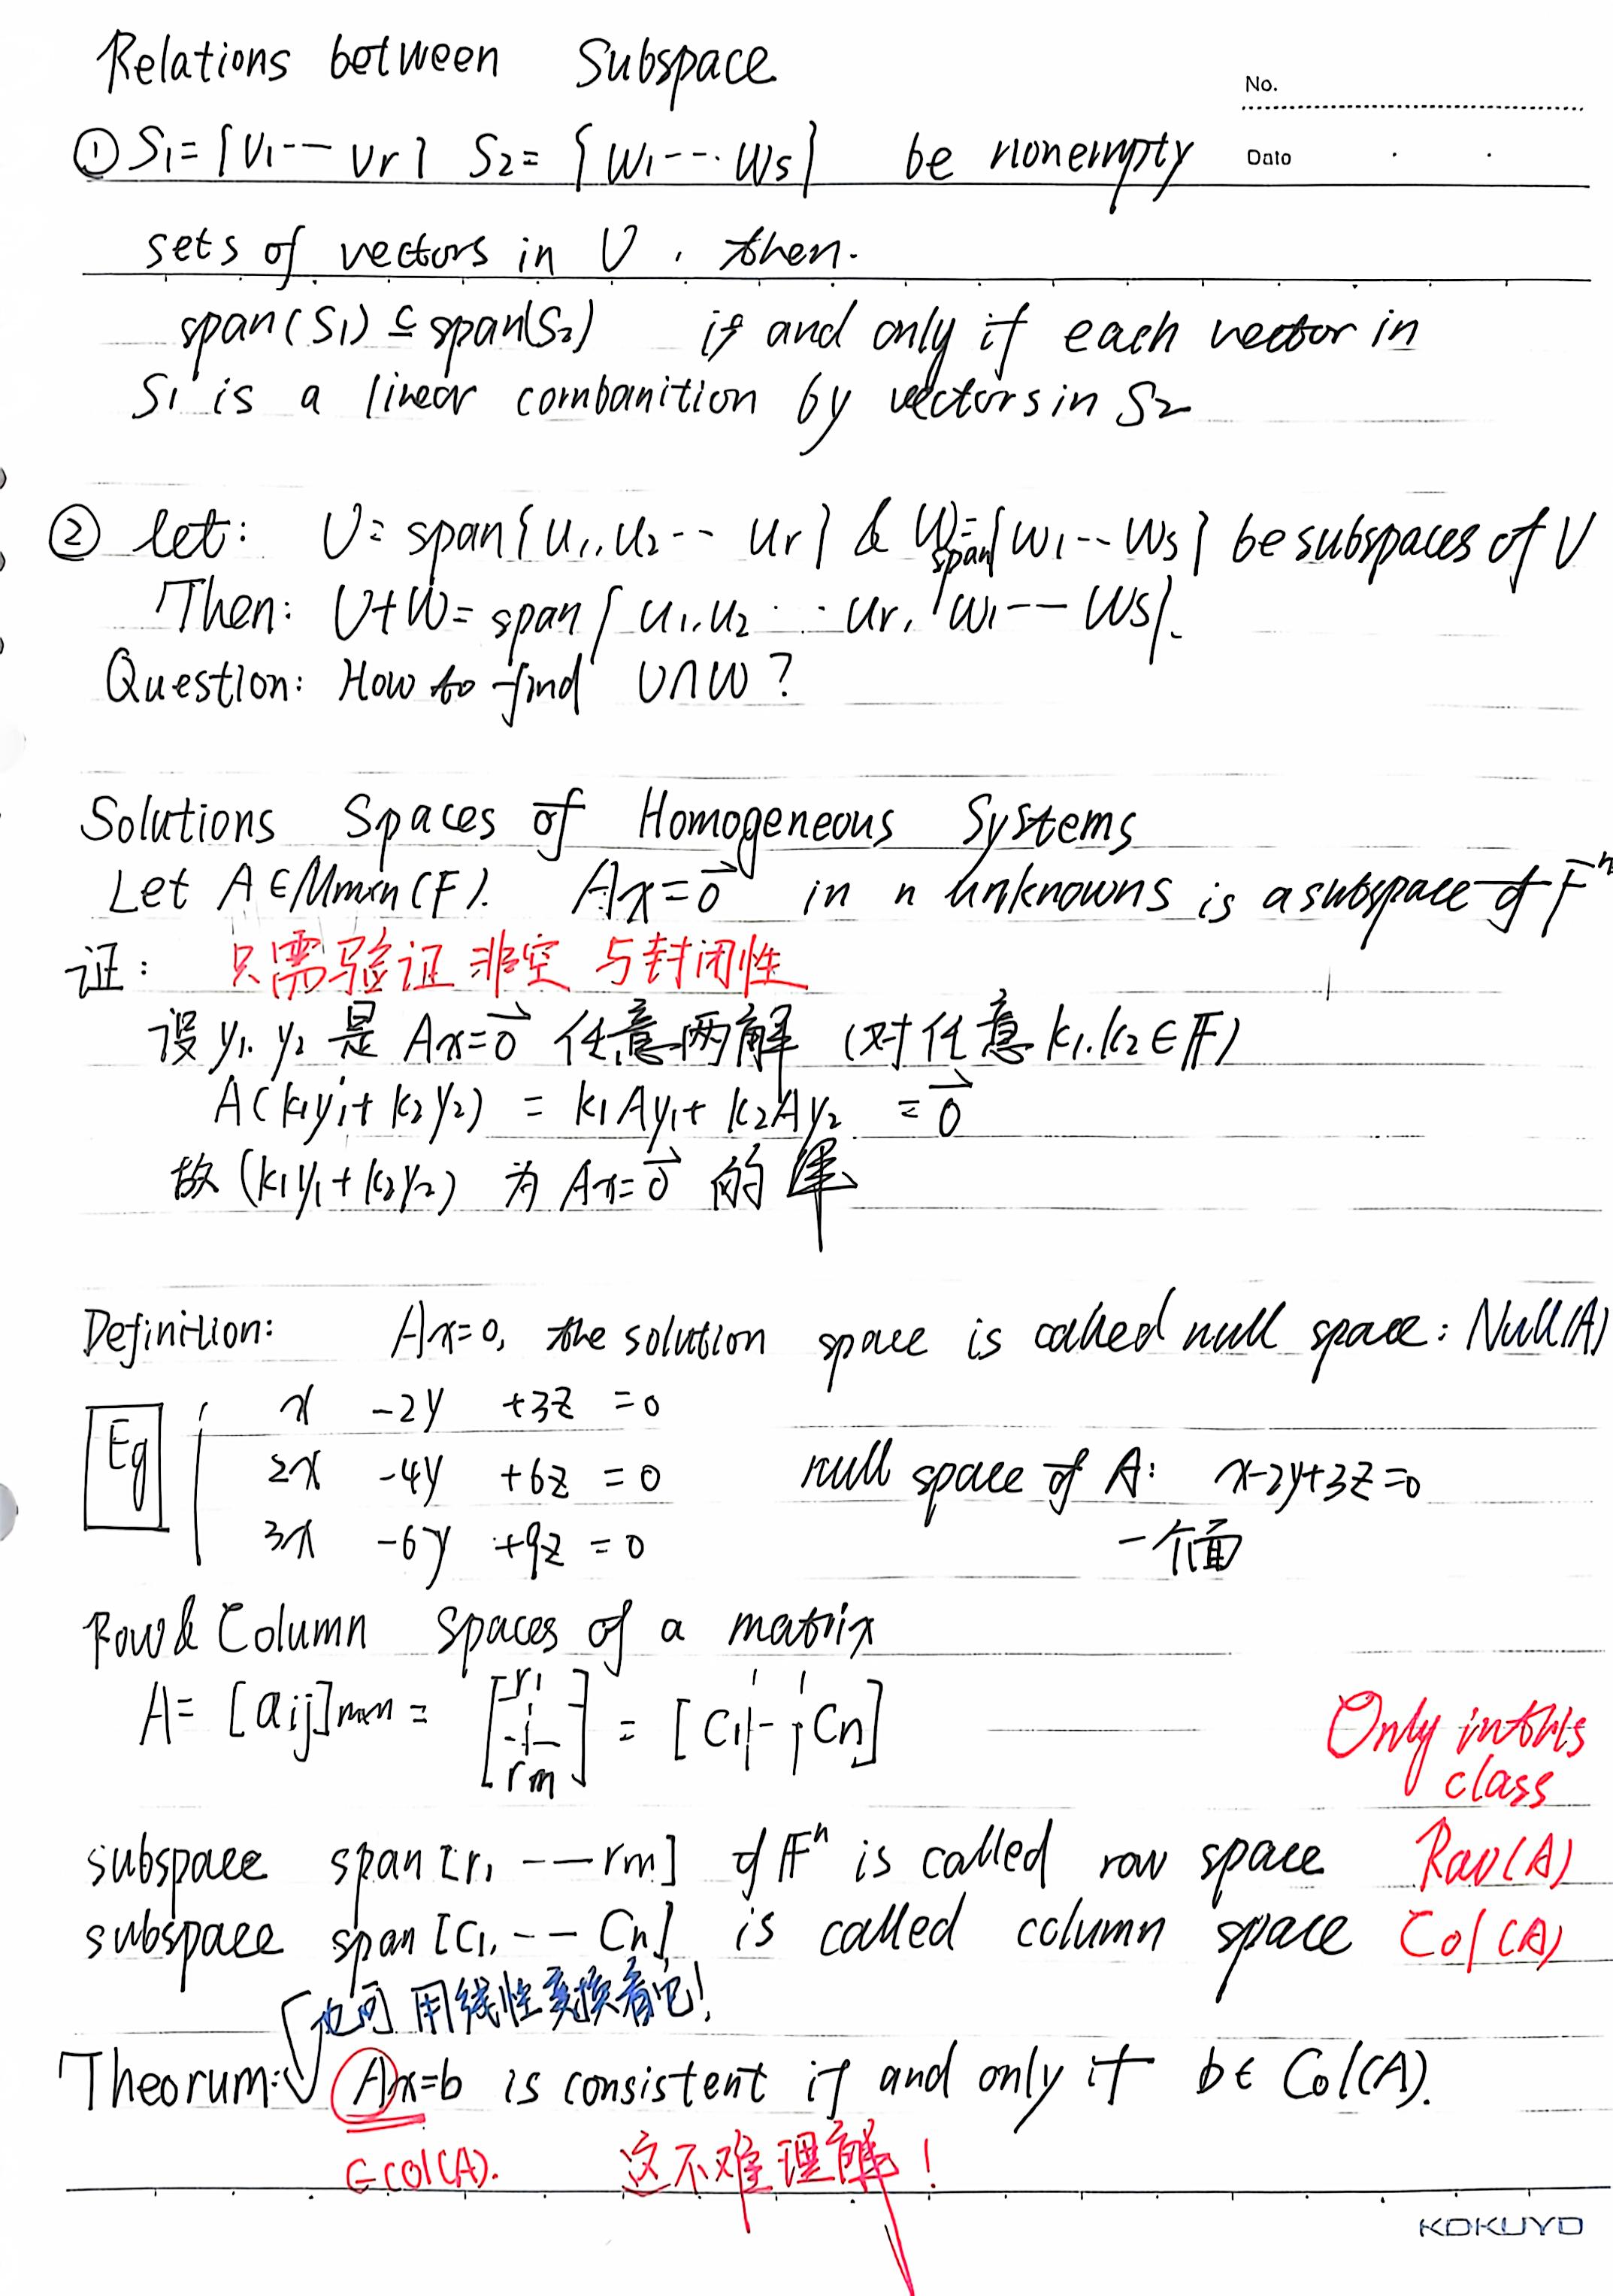 Relations between Subspace
No.
① S1={v1-- vr} S2={w1--- ws} be nonempty
Date
sets of vectors in V, then.
span(S1)⊆span(S2) if and only if each vector in
S1 is a linear combanition by vectors in S2
② let: U=span{u1,u2-- ur} & W=span{w1--ws} be subspaces of V
Then: U+W=span{u1,u2--ur, w1--ws}.
Question: How to find U∩W?
Solutions Spaces of Homogeneous Systems
Let A∈Mmxn(F). Ax=0⃗ in n unknowns is a subspace of Fⁿ
证: 只需验证非空与封闭性
设 y1. y2 是 Ax=0⃗ 任意两解 (对任意 k1.k2∈F)
A(k1y1+k2y2) = k1Ay1+k2Ay2 =0⃗
故 (k1y1+k2y2) 为 Ax=0⃗ 的解
Definition: Ax=0, the solution space is called null space: Null(A)
Eg
x -2y +3z =0
2x -4y +6z =0 null space of A: x-2y+3z=0
3x -6y +9z =0 一个面
Row & Column Spaces of a matrix
A= [aij]mxn = [r1 ⋮ rm] = [C1|--|Cn]
Only in this
class
subspace span[r1 ---rm] of Fⁿ is called row space Row(A)
subspace span[C1, -- Cn] is called column space Col(A)
也可用线性变换看它!
Theorum: Ax=b is consistent if and only if b∈Col(A).
∈Col(A). 这不难理解!
KOKUYO